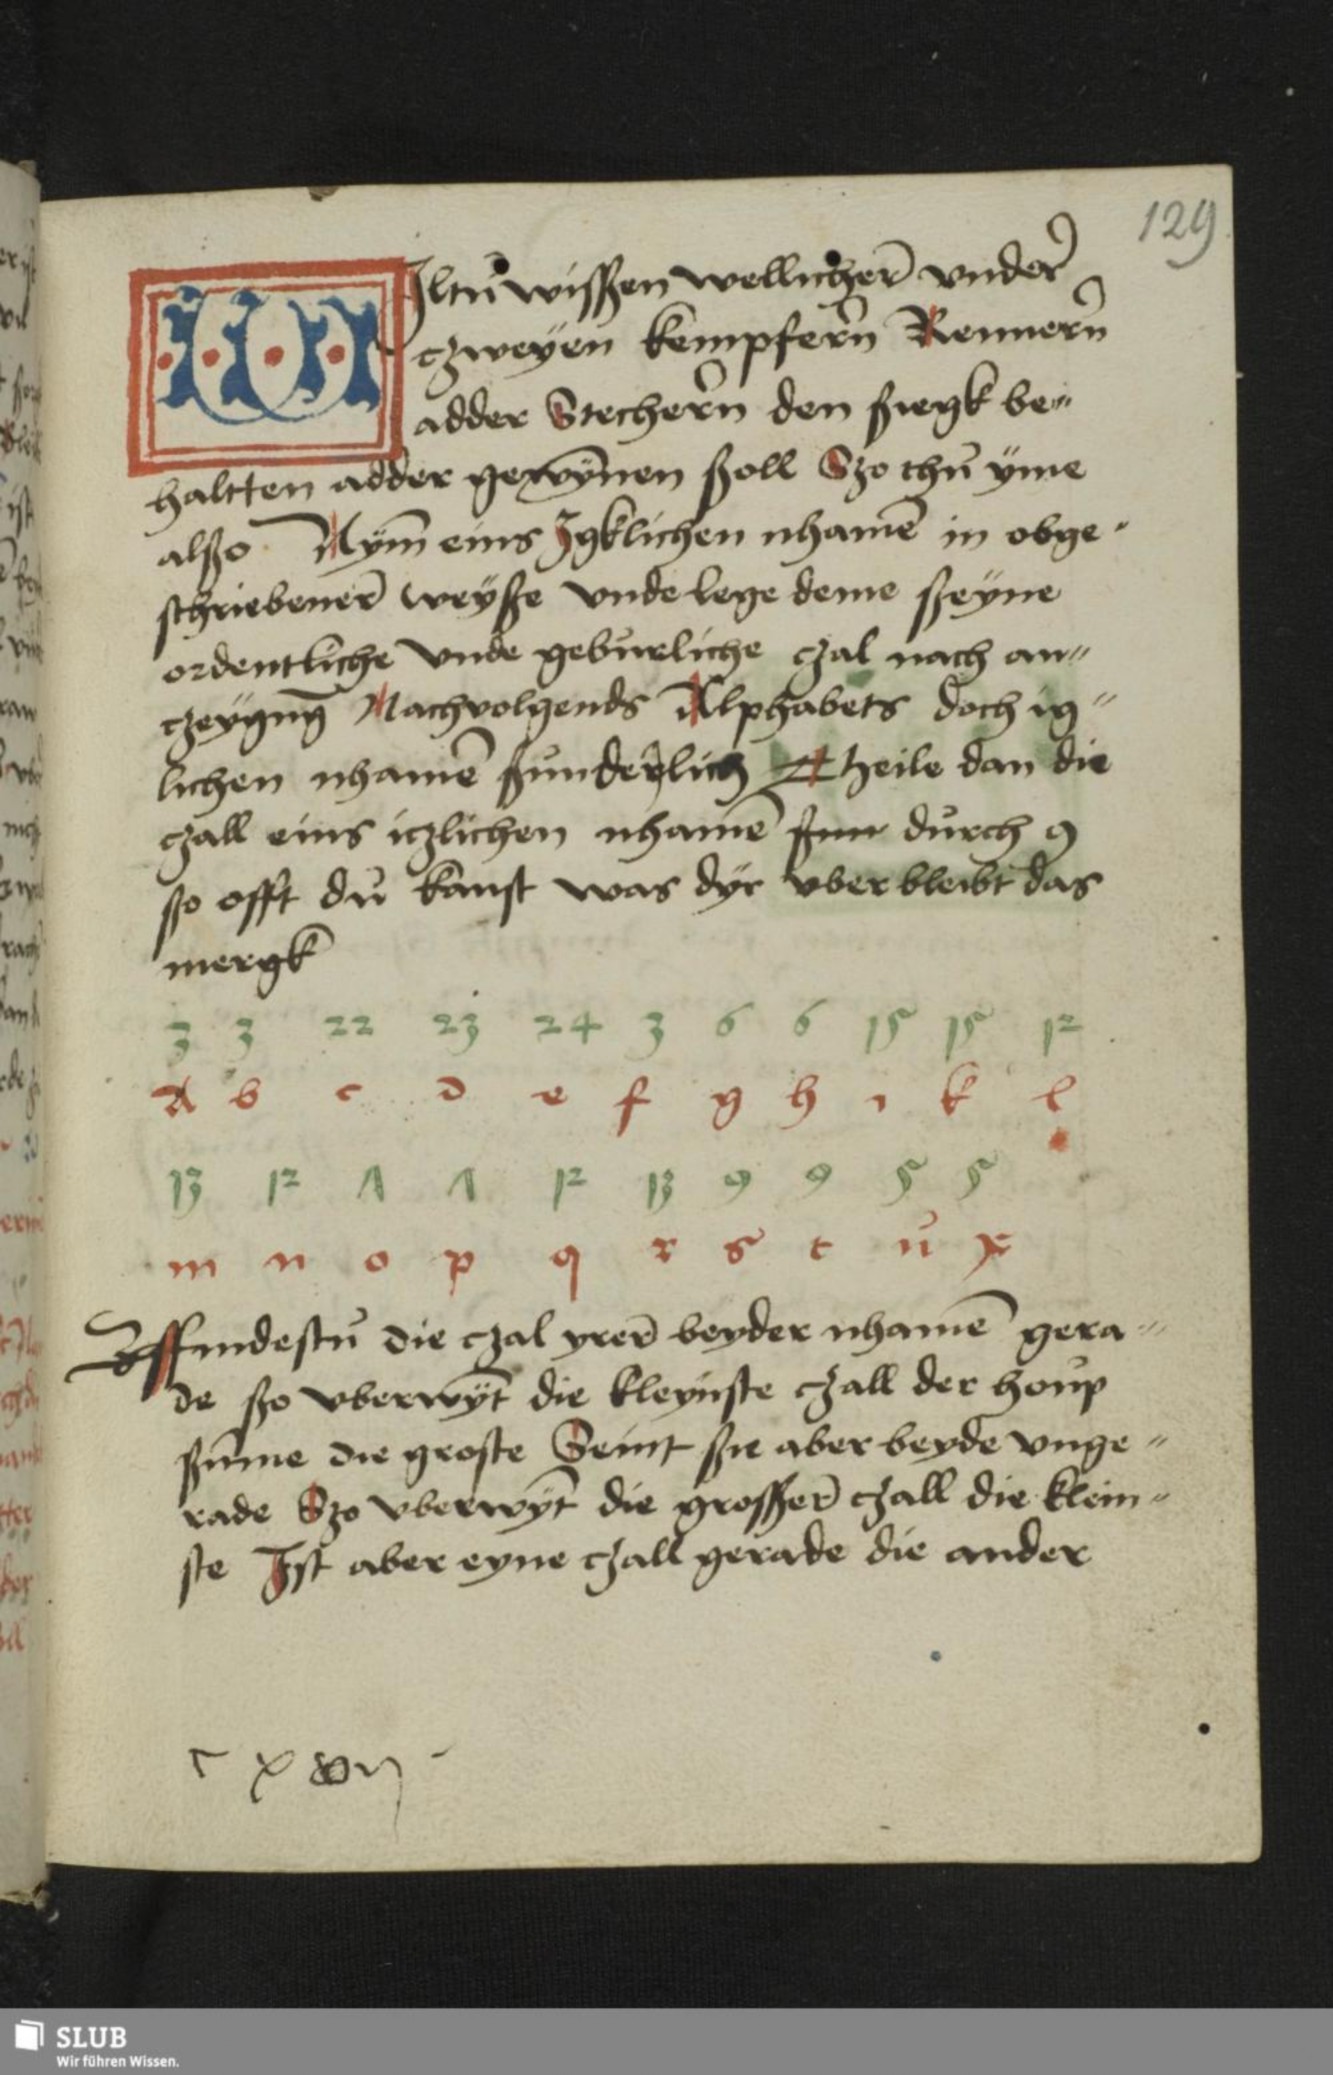 129
WIltu wisßen wellicher̄ vnder̄
czweyen kempfern̄ Rennern̄
adder Stechern̄ den ßiegk be„
haltten adder gewȳnen ßoll Szo thu yme
alßo Nym̄ eins Igklichen nhamē in obge„
schriebener̄ weyße vnde lege deme ßeyne
ordentliche vnde geburliche czal nach an„
czeygūg Nachvolgends Alphabets doch ig„
lichen nhamē ßunderlich theile dan die
czall eins iczlichen nhamē durch 9
ßo offt du kanst was dyr vberbleibt das
mergk
3 3 22 23 24 3 6 6 15 15 12
A b c d e f g h i k l
13 12 Λ Λ 12 13 9 9 5 5
m n o p q r s t u x
findestu die czal yrer̄ beyder nhamē gera„
de ßo vberwyt̄ die kleynste czall der houp
ßum̄e die groste Seint ßie aber beyde vnge„
rade Szo vberwyt̄ die grosßer̄ czall die klein„
ste Ist aber eyne czall gerade die ander
SLUB
Wir führen Wissen.